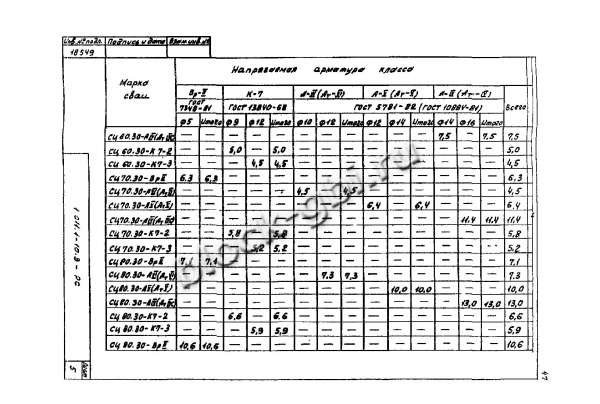 Инв.№ подл. Подпись и дата Взам.инв.№
18549
Марка сваи
Напрягаемая арматура класса
Вр-II К-7 А-VI (Ат-VI) А-V (Ат-V) А-IV (Ат-IV)
ГОСТ 7348-81 ГОСТ 13840-68 ГОСТ 5781-82 (ГОСТ 10884-81) Всего
Ф5 Итого Ф9 Ф12 Итого Ф10 Ф12 Итого Ф12 Ф14 Итого Ф14 Ф16 Итого
СЦ 60.30-АIV(АтIV) — — — — — — — — — — — 7,5 — 7,5 7,5
СЦ 60.30-К7-2 — — 5,0 — 5,0 — — — — — — — — — 5,0
СЦ 60.30-К7-3 — — — 4,5 4,5 — — — — — — — — — 4,5
СЦ 70.30-ВрII 6,3 6,3 — — — — — — — — — — — — 6,3
СЦ 70.30-АVI(АтVI) — — — — — 4,5 — 4,5 — — — — — — 4,5
СЦ 70.30-АV(АтV) — — — — — — — — 6,4 — 6,4 — — — 6,4
СЦ 70.30-АIV(АтIV) — — — — — — — — — — — — 11,4 11,4 11,4
СЦ 70.30-К7-2 — — 5,8 — 5,8 — — — — — — — — — 5,8
СЦ 70.30-К7-3 — — — 5,2 5,2 — — — — — — — — — 5,2
СЦ 80.30-ВрII 7,1 7,1 — — — — — — — — — — — — 7,1
СЦ 80.30-АVI(АтVI) — — — — — — 7,3 7,3 — — — — — — 7,3
СЦ 80.30-АV(АтV) — — — — — — — — — 10,0 10,0 — — — 10,0
СЦ 80.30-АIV(АтIV) — — — — — — — — — — — — 13,0 13,0 13,0
СЦ 80.30-К7-2 — — 6,6 — 6,6 — — — — — — — — — 6,6
СЦ 80.30-К7-3 — — — 5,9 5,9 — — — — — — — — — 5,9
СЦ 90.30-ВрII 10,6 10,6 — — — — — — — — — — — — 10,6
1.011.1-10.8 - РС
Лист
5
47
block-gbi.ru